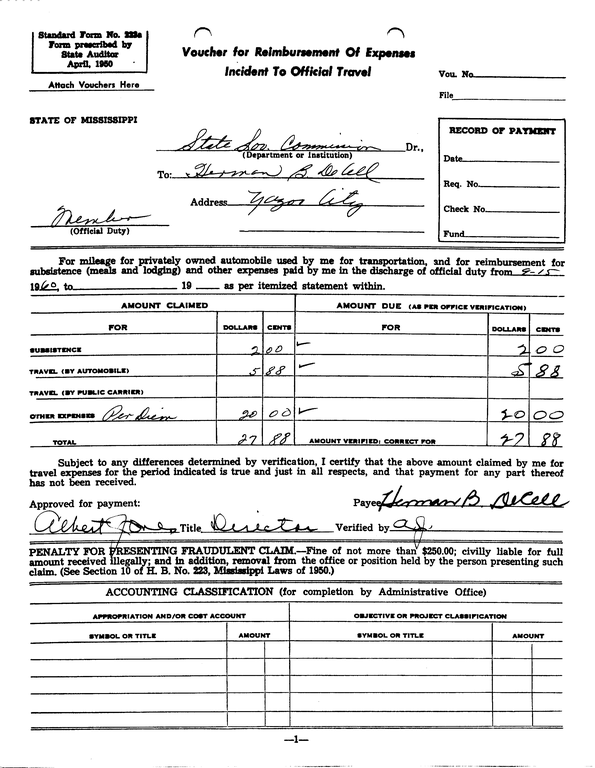 Standard Form No. 223a
Form prescribed by
State Auditor
April, 1950
Attach Vouchers Here
Voucher for Reimbursement Of Expenses
Incident To Official Travel
Vou. No.
File
STATE OF MISSISSIPPI
State Sov. Commission Dr.,
(Department or Institution)
To: Herman B DeCell
Address Yazoo City
Member
(Official Duty)
RECORD OF PAYMENT
Date
Req. No.
Check No.
Fund
For mileage for privately owned automobile used by me for transportation, and for reimbursement for
subsistence (meals and lodging) and other expenses paid by me in the discharge of official duty from 9-15
1960, to 19 as per itemized statement within.
AMOUNT CLAIMED AMOUNT DUE (AS PER OFFICE VERIFICATION)
FOR DOLLARS CENTS FOR DOLLARS CENTS
SUBSISTENCE 2 00 ✓ 2 00
TRAVEL (BY AUTOMOBILE) 5 88 ✓ 5 88
TRAVEL (BY PUBLIC CARRIER)
OTHER EXPENSES Per Diem 20 00 ✓ 20 00
TOTAL 27 88 AMOUNT VERIFIED; CORRECT FOR 27 88
Subject to any differences determined by verification, I certify that the above amount claimed by me for
travel expenses for the period indicated is true and just in all respects, and that payment for any part thereof
has not been received.
Approved for payment: Payee Herman B. DeCell
Albert Jones Title Director Verified by aj.
PENALTY FOR PRESENTING FRAUDULENT CLAIM.—Fine of not more than $250.00; civilly liable for full
amount received illegally; and in addition, removal from the office or position held by the person presenting such
claim. (See Section 10 of H. B. No. 223, Mississippi Laws of 1950.)
ACCOUNTING CLASSIFICATION (for completion by Administrative Office)
APPROPRIATION AND/OR COST ACCOUNT OBJECTIVE OR PROJECT CLASSIFICATION
SYMBOL OR TITLE AMOUNT SYMBOL OR TITLE AMOUNT
—1—